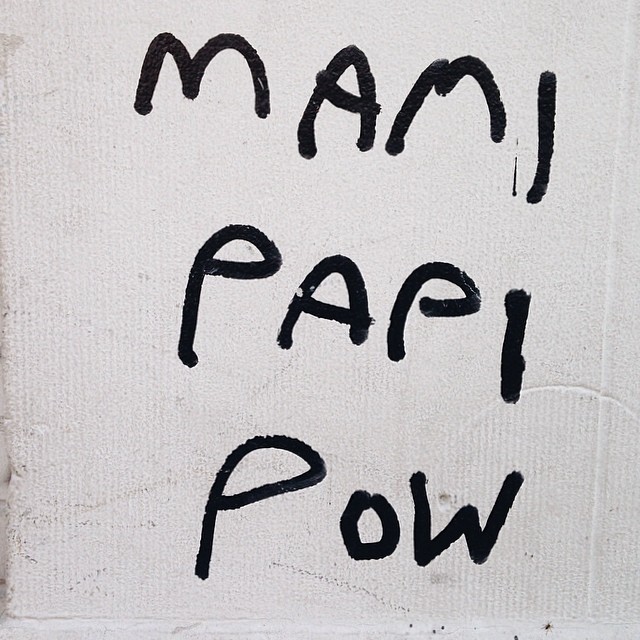 MAMI
PAPI
POW